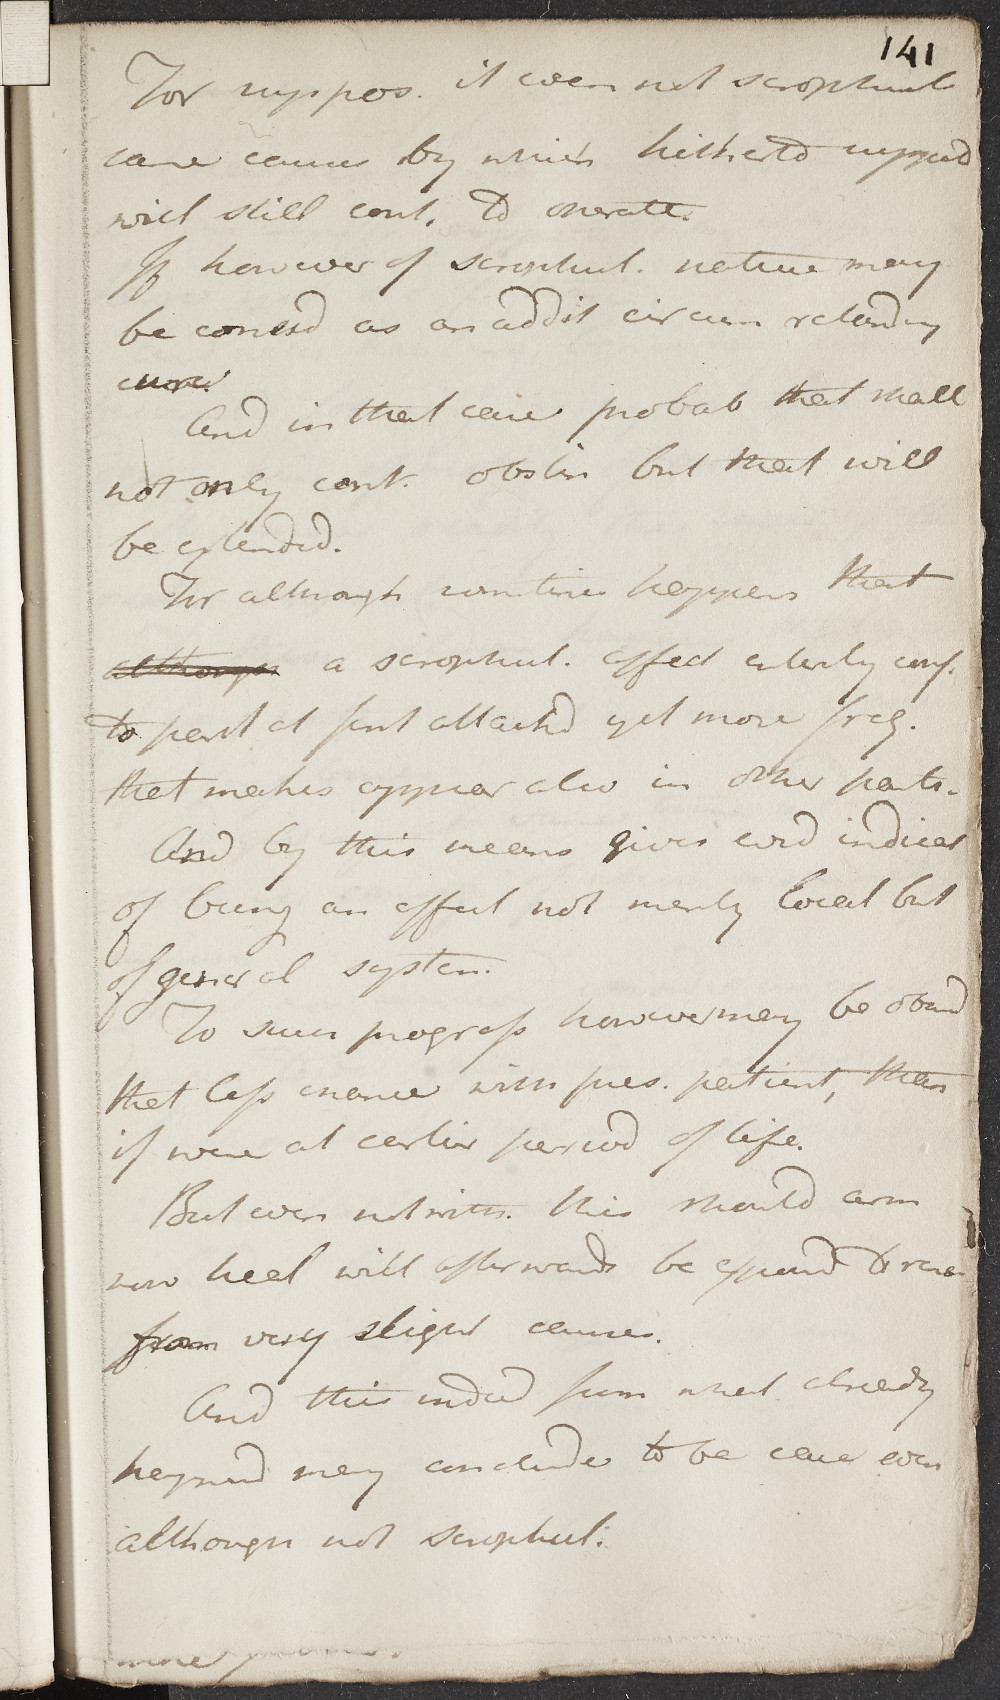 141
For suppos. it even not scrophul
same causes by which hitherto suppord
will still cont. to operate.
If however of scrophul. nature may
be consd as an addit circum retarding
cure.
And in that case probab that shall
not only cont. obstin but that will
be extended.
For although sometimes happens that
although a scrophul. affect entirely conf.
to part at first attackd yet more freq.
that makes appear also in other parts.
And by this means gives evid indicat
of being an affect not merely local but
of general system.
To such progress however may be obsd
that less chance with pres. patient, than
if were at earlier period of life.
But even notwith. this should arm
now heal will afterwards be exposd to
from very slight causes.
And this indeed from what already
happend may conclude to be case even
although not scrophul.